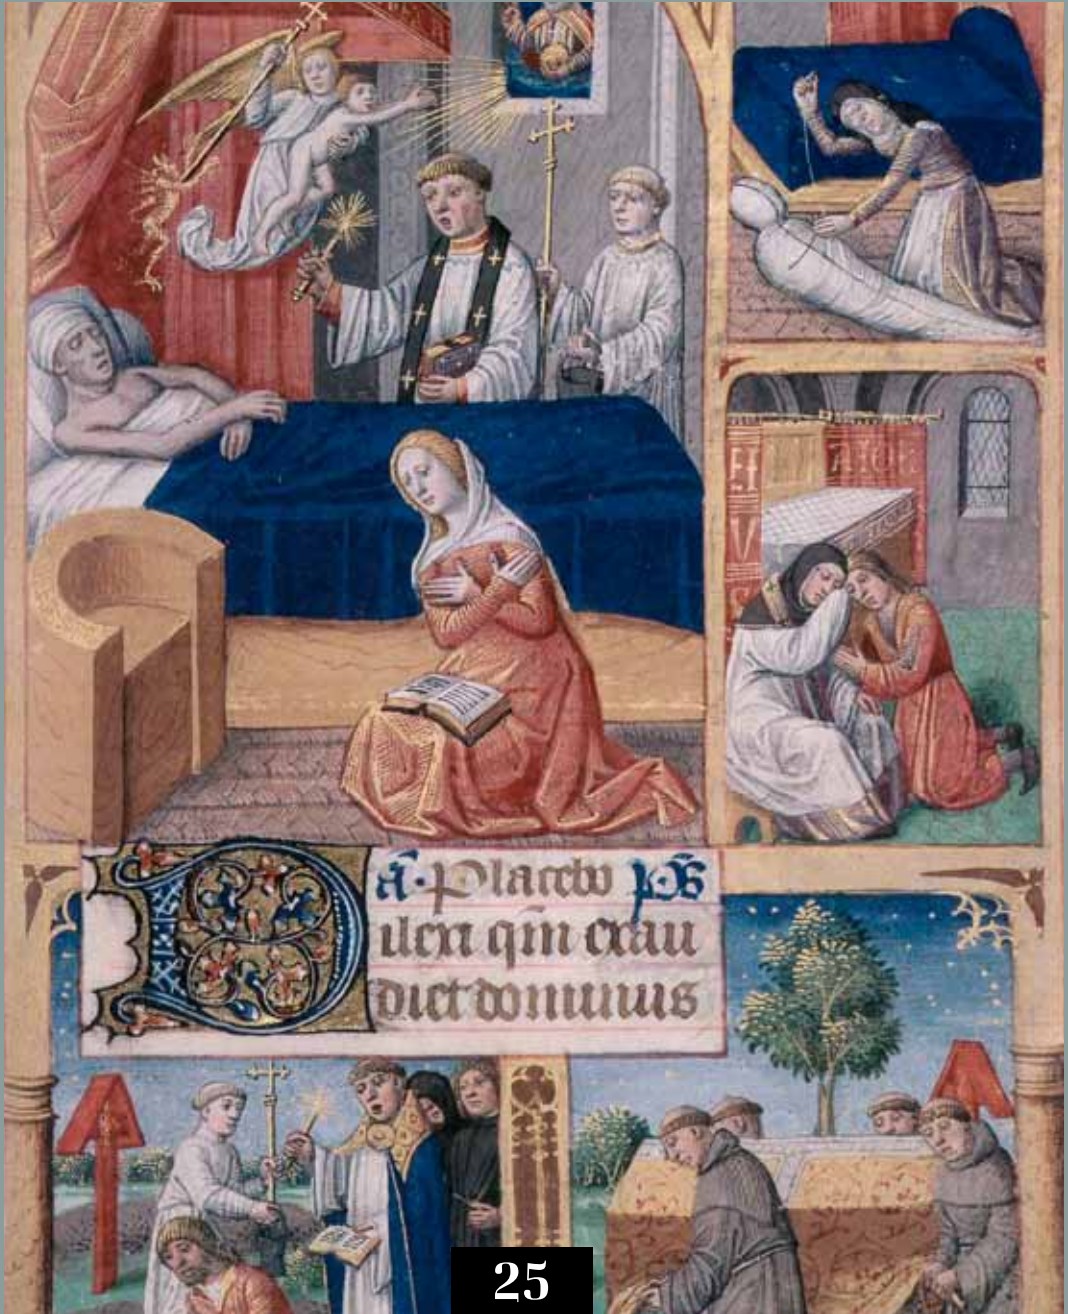 añ. Placebo pš
Dilexi qm̄ exau
diet dominus
25